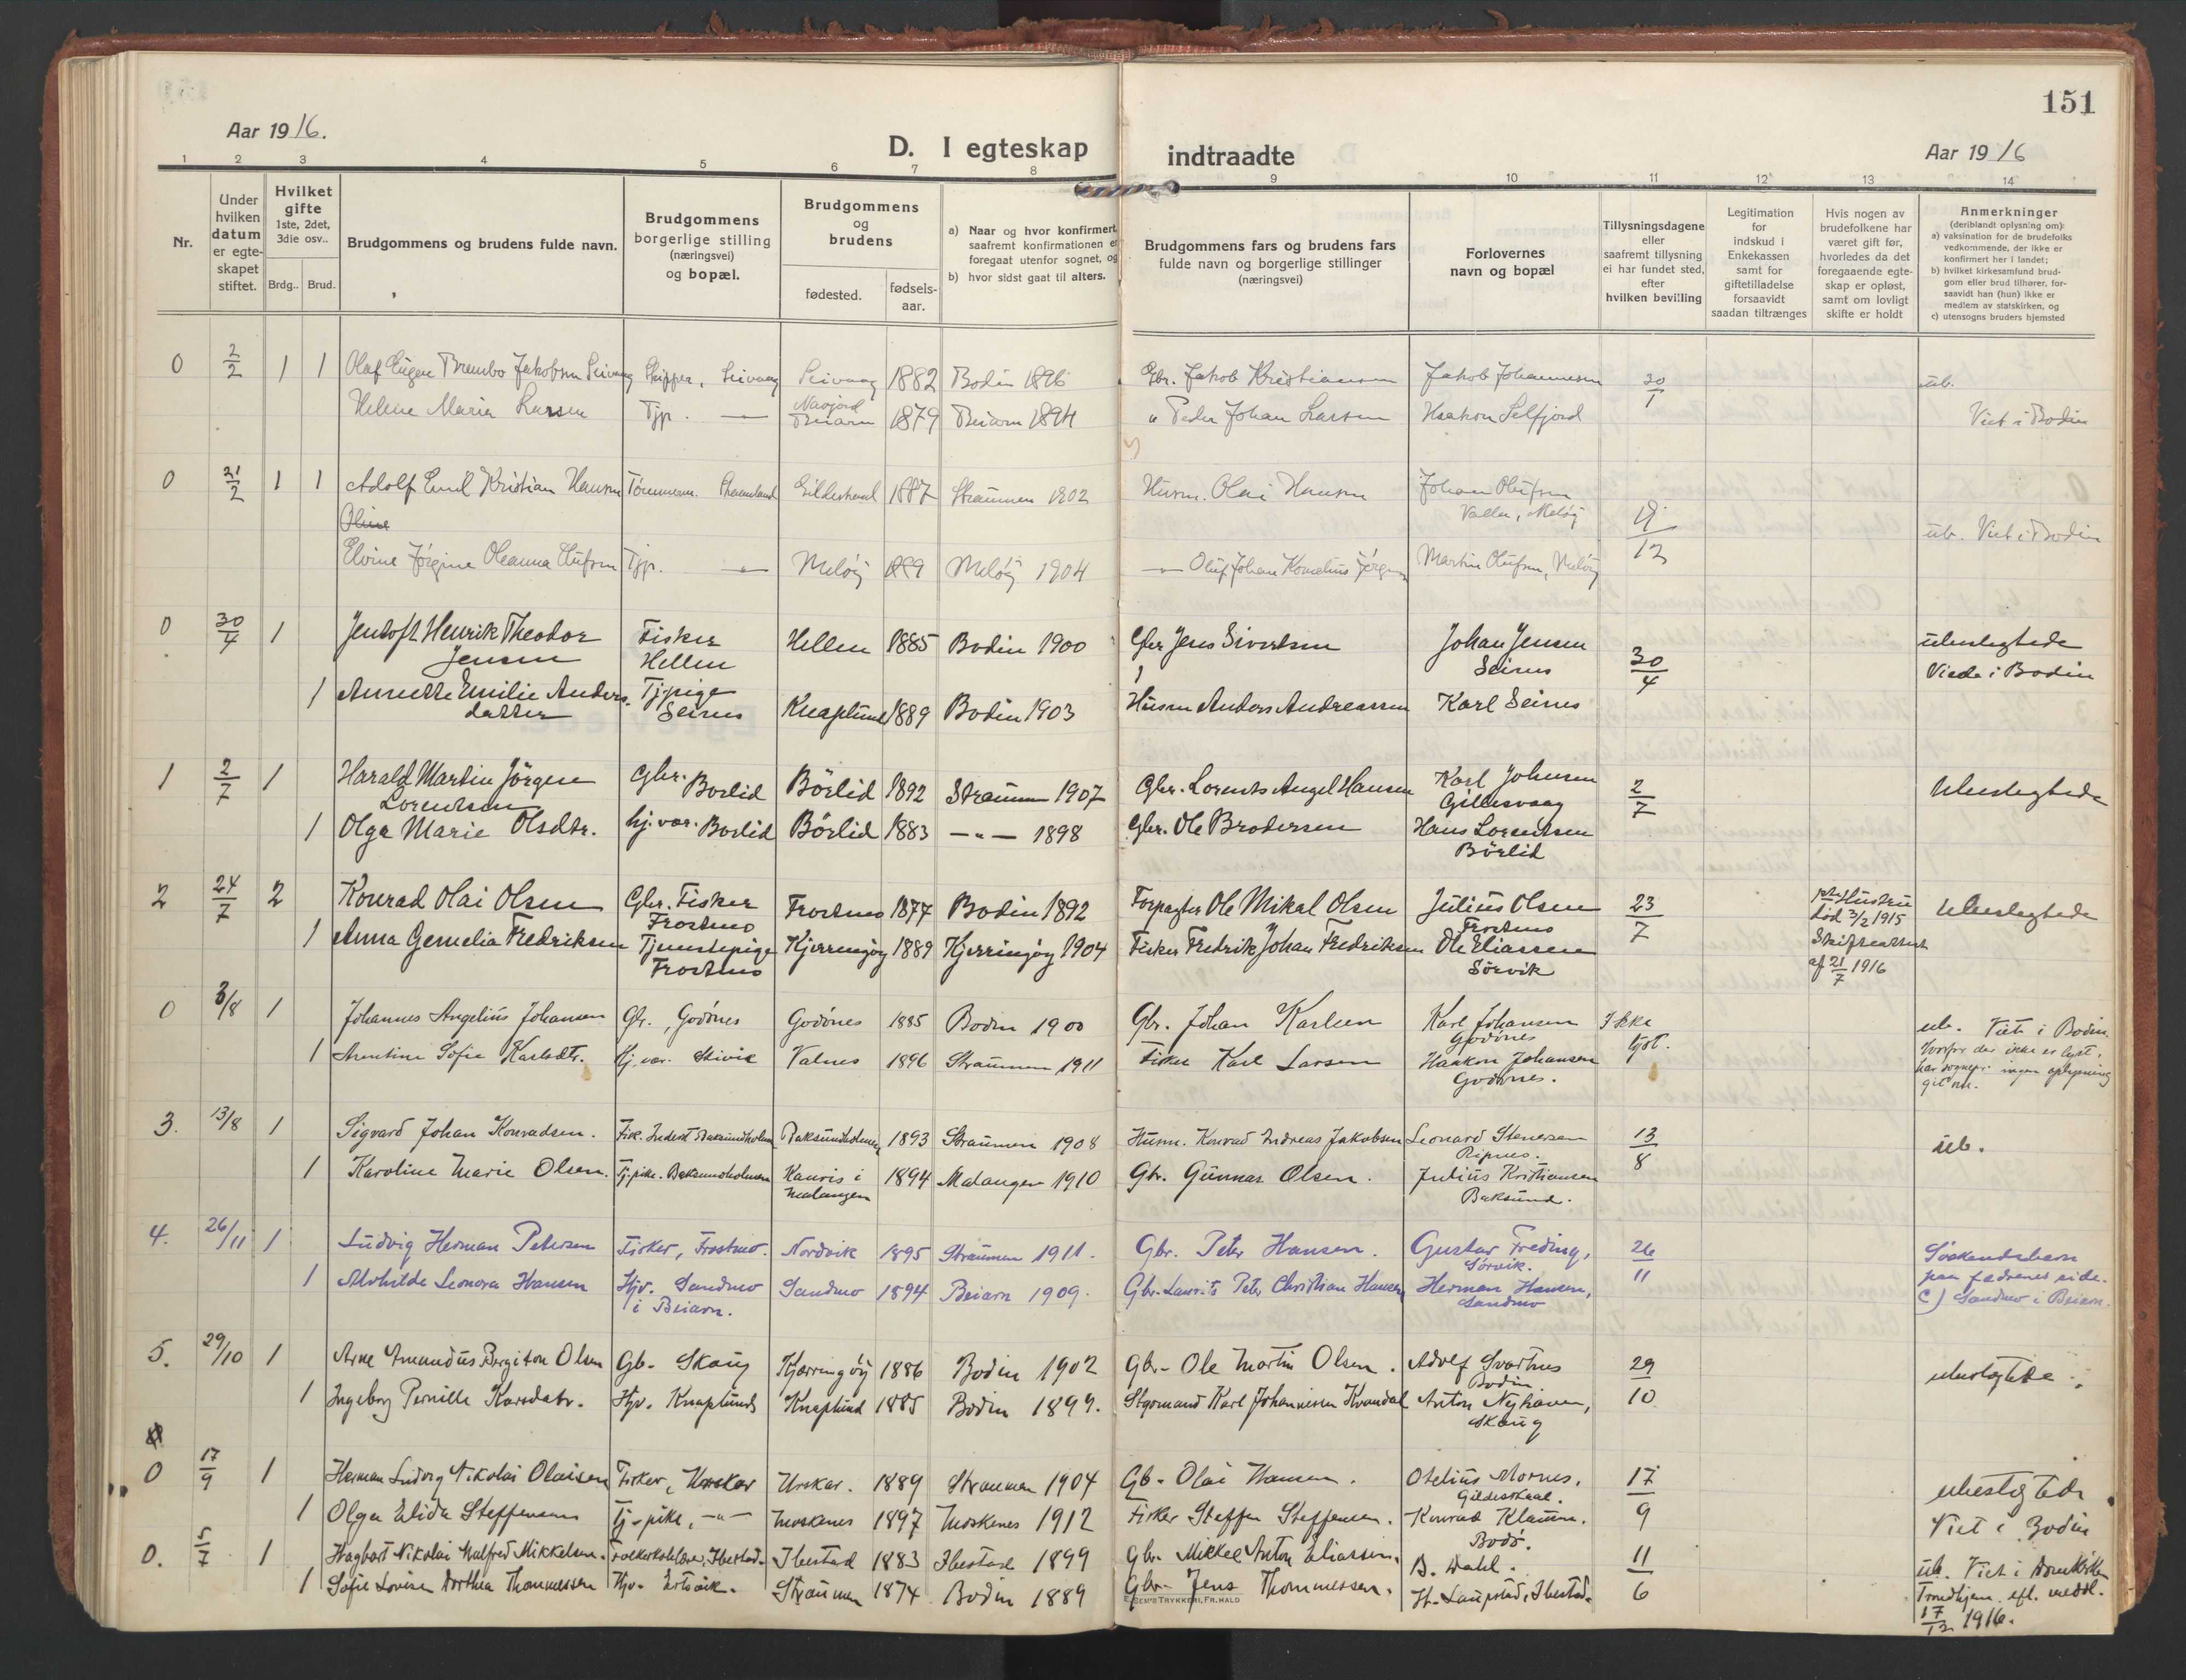 151
Aar 1916.
D. I egteskap indtraadte
Aar 1916
1 2 3 4 5 6 7 8 9 10 11 12 13 14
Nr.
Under hvilken datum er egteskapet stiftet.
Hvilket gifte 1ste, 2det, 3die osv..
Brdg.. Brud.
Brudgommens og brudens fulde navn.
Brudgommens borgerlige stilling (næringsvei) og bopæl.
Brudgommens og brudens
fødested.
fødselsaar.
a) Naar og hvor konfirmert, saafremt konfirmationen er foregaat utenfor sognet, og
b) hvor sidst gaat til alters.
Brudgommens fars og brudens fars fulde navn og borgerlige stillinger (næringsvei)
Forlovernes navn og bopæl
Tillysningsdagene eller saafremt tillysning ei har fundet sted, efter hvilken bevilling
Legitimation for indskud i Enkekassen samt for giftetilladelse forsaavidt saadan tiltrænges
Hvis nogen av brudefolkene har været gift før, hvorledes da det foregaaende egteskap er opløst, samt om lovligt skifte er holdt
Anmerkninger (deriblandt oplysning om):
a) vaksination for de brudefolks vedkommende, der ikke er konfirmert her i landet;
b) hvilket kirkesamfund brudgom eller brud tilhører, forsaavidt han (hun) ikke er medlem av statskirken, og
c) utensogns bruders hjemsted
0 2/2 1 1 Olaf Eugen Brembo Jakobsen Seivaag Skipper, Seivaag Seivaag 1882 Bodin 1896 Gbr. Jakob Kristiansen Jakob Johannesen 30/1 ub.
Helene Maria Larsen Tjp. — Beiarn 1879 Beiarn 1894 " Peder Johan Larsen Haakon Selfjord Viet i Bodin
0 21/2 1 1 Adolf Emil Kristian Hansen Tømmerm. Gildeskaal 1887 Straumen 1902 Husm. Olai Hansen Johan Olufsen
Oline Meløy
Elvine Jørgine Oleanna Olufsen Tjp. —"— Meløy 1889 Meløy 1904 —"— Oluf Johan Kornelius Jørgensen Martin Olufsen, Meløy 12 ub. Viet i Bodin
0 30/4 1 Jentoft Henrik Theodor Jensen Fisker Hellen Hellen 1885 Bodin 1900 Gbr Jens Sivertsen Johan Jensen Seines 30/4 ubeslegtede Viede i Bodin
1 Annette Emilie Andersdatter Tjpige Seines Knaplund 1889 Bodin 1903 Husm Anders Andreassen Karl Seines
1 2/7 1 Harald Martin Jörgen Lorentsen Gbr. Borlid Börlid 1892 Straumen 1907 Gbr. Lorents Angel Hansen Karl Johnsen Gillesvaag 2/7 Ubeslegtede
1 Olga Marie Olsdtr. hj.vær. Borlid Börlid 1883 —"— 1898 Gbr. Ole Brodersen Hans Lorentsen Börlid
2 24/7 2 Konrad Olai Olsen Gbr. Fisker Frostmo Frostmo 1877 Bodin 1892 Forpagter Ole Mikal Olsen Julius Olsen Frostmo 23/7 1ste Hustru død 3/2 1915 Skifteattest af 21/7 1916 Ubeslegtede
1 Anna Gemelia Fredriksen Tjenstepige Frostmo Kjerringøy 1889 Kjerringøy 1904 Fisker Fredrik Johan Fredriksen Ole Eliassen Sörvik
0 3/8 1 Johannes Angelius Johansen Gbr., Godønes Godønes 1885 Bodin 1900 Gbr. Johan Karlsen Karl Johansen Godønes Ikke lyst. ub. Viet i Bodin. Hvorfor der ikke er lyst, har sognepr. ingen oplysning git om.
1 Arentine Sofie Karlsdtr. Hj. vær. Skivik Valnes 1896 Straumen 1911 Fisker Karl Larsen Haakon Johansen Godønes.
3. 13/8 1 Sigvard Johan Konradsen. Fisk. Inderst Baksundholmen Baksundholmen 1893 Straumen 1908 Husm. Konrad Andreas Jakobsen Leonard Stenersen Ripnes. 13/8 ub.
1 Karoline Marie Olsen. Tj. pike. Baksundholmen Kanris i Malangen 1894 Malangen 1910 Gbr. Gunnar Olsen. Julius Kristiansen Baksund.
4. 26/11 1 Ludvig Herman Petersen Fisker, Frostmo. Nordvik 1895 Straumen 1911. Gbr. Peter Hansen. Gustav Freding, Sörvik. 26/11 Söskendebarn paa fædrenes side. C) Sandmo i Beiarn.
1 Alvhilde Leonora Hansen Hjv. Sandmo i Beiarn. Sandmo 1894 Beiarn 1909. Gbr. Laurits Peter Christian Hansen Herman Hansen, Sandmo
5. 29/10 1 Arne Amandus Bergiton Olsen Gb. Skaug Kjærringøy 1886 Bodin 1902 Gbr. Ole Martin Olsen. Adolf Svartnes Bodin 29/10 ubeslegtede.
1 Ingeborg Pernille Karlsdatr. Hjv. Knaplund Knaplund 1885 Bodin 1899. Stgomand Karl Johannesen Kvandal Anton Nyhaven, Skaug
0 17/9 1 Herman Ludvig Nikolai Olaisen Fisker, Urskar Urskar. 1889 Straumen 1904 Gb. Olai Hansen. Otelius Mornes. Gildeskaal. 17/9 ubeslegtede
1 Olga Elida Steffensen Tj. pike, —"— Moskenes 1897 Moskenes 1912 Fisker Steffen Steffensen. Konrad Klausen. Bodø. Viet i Bodin
0. 5/7 1 Hagbart Nikolai Malfred Mikkelsen. Folkeskolelærer, Ibestad. Ibestad 1883 Ibestad 1899 Gbr. Mikkel Anton Eliassen. B. Dahl. 11/6 ub. Viet i Domkirken Trondhjem. efl. medd. 17/12 1916.
1 Sofie Lovise Dorthea Thommessen Hjv. Straumen 1874 Bodin 1889 Gbr. Jens Thommessen. H. Laupstad, Ibestad.
E. SEM'S TRYKKERI, FR.HALD